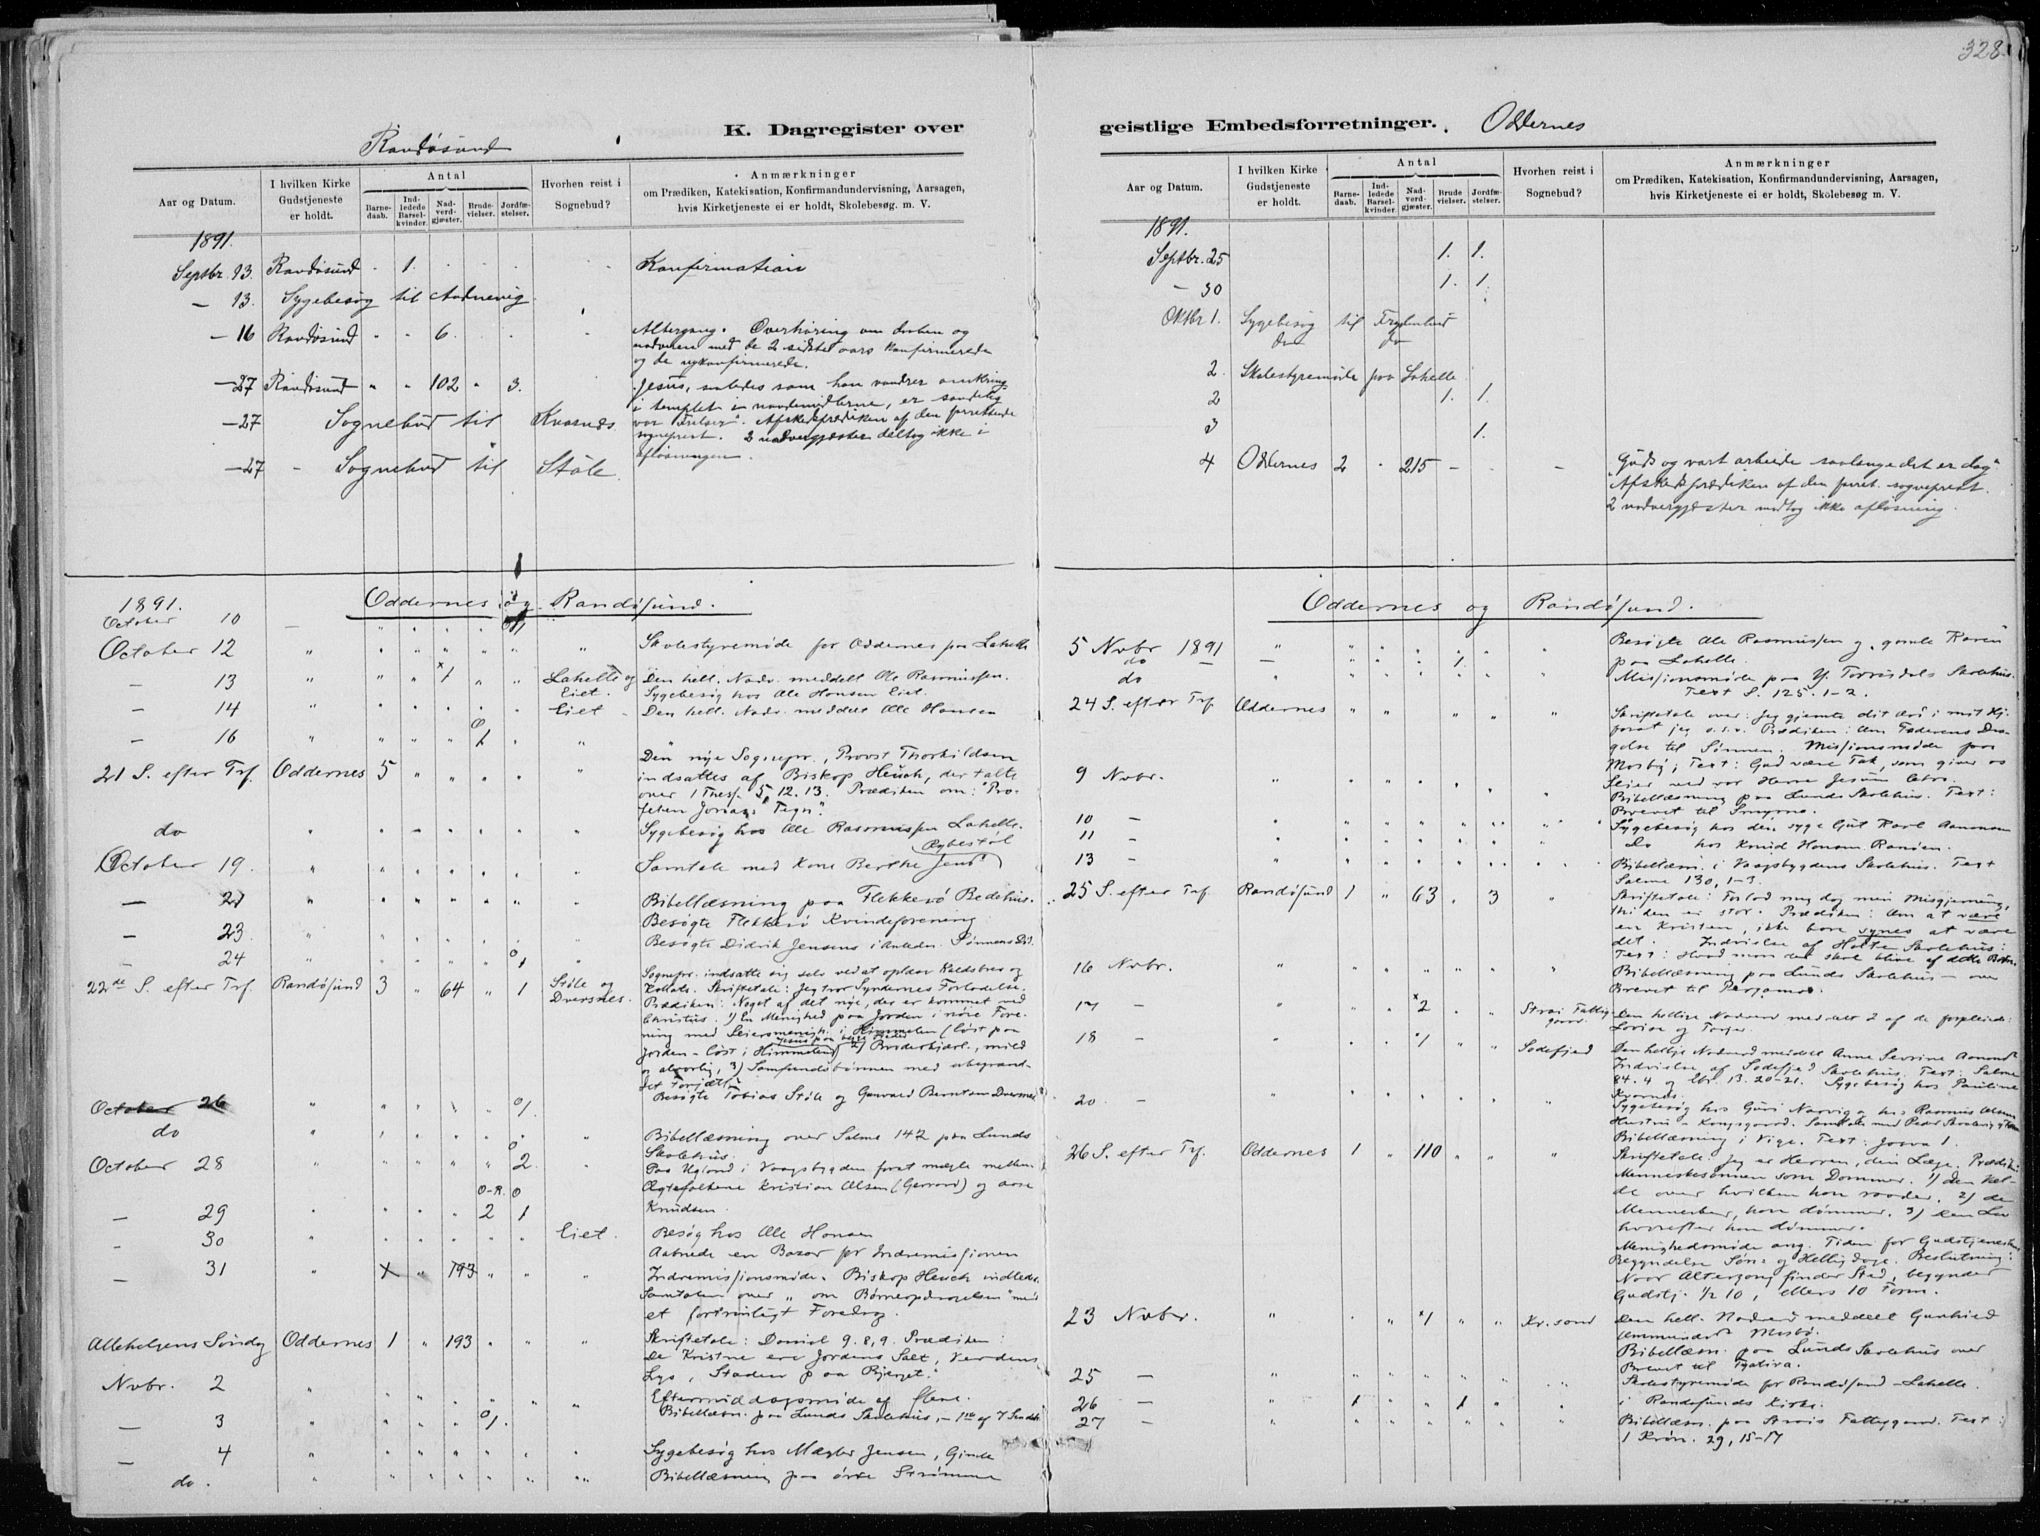 328.
K. Dagregister over
Randøsund
Aar og Datum.
I hvilken Kirke Gudstjeneste er holdt.
Antal
Barne-daab.
Ind-ledede Barsel-kvinder.
Nad-verd-gjæster.
Brude-vielser.
Jordfæ-stelser.
Hvorhen reist i Sognebud?
Anmærkninger
om Prædiken, Katekisation, Konfirmandundervisning, Aarsagen,
hvis Kirketjeneste ei er holdt, Skolebesøg m. V.
1891.
Septbr. 13. Randøsund 1. Konfirmation
— 13. Sygebesøg til
— 16 Randøsund " " 6. Altergang. Overhøring om daaben og
nadveren med de 2 sidste aars konfirmerede
og de nykonfirmerede.
— 27 Randøsund " " 102 " 3. Jesus, saaledes som han vandrer omkring
i templet i naademidlerne, er
vor Frelser". Afskedsprædiken af den forrettende
sogneprest. 2 nadvergjæster deltog ikke i
afløsningen.
— 27 Sognebud til Kvasnes
— 27 - Sognebud til Støle.
Oddernes og Randøsund.
1891.
October 10
October 12 Skolestyremøde for Oddernes paa Lahelle
— 13 x1 Lahelle og Eiet. Den hell. Nadv. meddelt Ole Rasmussen.
Sygebesøg hos Ole Hansen Eiet.
— 14 Eiet Den hell. Nadv. meddelt Ole Hansen
— 16 O 1
21 S. efter Trf. Oddernes 5 Den nye Sognepr., Provst Thorkildsen
indsattes af Biskop Heuch, der talte
over 1 Thess. 5, 12. 13. Prædiken om: "Pro-
feten Jonas' Tegn".
do Sygebesøg hos Ole Rasmussen Lahelle.
October 19. Samtale med Kone Berthe Jens
— 21 Bibellæsning paa Flekkerø Bedehus.
Besøgte Flekkerø Kvindeforening
— 23. Besøgte Didrik Jensens
— 24 O 1
22de S. efter Trf. Randøsund 3 " 64 " 1 Støle og Dversnes. Sognepr. indsatte sig selv ved at oplæse Kaldsbrev og
Skriftetale: Jeg tror Syndernes Forladelse.
Prædiken: Noget af det nye, der er kommet ved
Christus. 1) En Menighed paa Jorden i nøie Fore-
ning med Seiersmenigh. i Himmelen (løst paa
Jorden - løst i Himmelen) 2) Broderkjærl., mild
og alvorlig, 3) Samfundsbønnen med ubegrænd-
set Forjættelse
October 26 O 1. Besøgte Tobias Støle og Gunvald Berntsen Dversnes
do Bibellæsning over Salme 142 paa Lunds
Skolehus.
October 28 O 2. Paa Ugland i Vaagsbygden forat mægle mellem
Ægtefolkene Kristian Olsen (Gerrard) og
Knudsen.
— 29 O-R. 2 O 1
— 30 Eiet. Besøg hos Ole Hansen
Aabnede en Bazar for Indremissionen
— 31 X 193 Indremissionsmøde. Biskop Heuch indledede
Samtalen over "om Børneopdragelsen" med
et fortrinligt Foredrag.
Allehelgens Søndag Oddernes 1 " 193 Skriftetale: Daniel 9. 8, 9. Prædiken:
De Kristne ere Jordens Salt, Verdens
Lys, Staden paa Bjerget.
Nvbr. 2 Eftermiddagsmøde af
— 3 O 1. Bibellæsn. paa Lunds Skolehus, - 1ste af 7
— 4 Sygebesøg hos Mægler Jensen, Gimle
do. Bibellæsning paa øvre Strømme
geistlige Embedsforretninger.
Oddernes
Aar og Datum.
I hvilken Kirke Gudstjeneste er holdt.
Antal
Barne-daab.
Ind-ledede Barsel-kvinder.
Nad-verd-gjæster.
Brude vielser.
Jordfæ-stelser.
Hvorhen reist i Sognebud?
Anmærkninger
om Prædiken, Katekisation, Konfirmandundervisning, Aarsagen,
hvis Kirketjeneste ei er holdt, Skolebesøg m. V.
1891.
Septbr. 25 1. 1.
— 30 1. 1.
Oktbr 1. Sygebesøg til
do do
2. Skolestyremøde paa Lahelle
2 1. 1.
3 1.
4 Oddernes 2 " 215 - - "Guds og vart arbeide saalænge det er dag"
Afskedsprædiken af den forret. sogneprest.
2 nadvergjæster modtog ikke afløsning.
Oddernes og Randøsund.
5 Nvbr 1891 Besøgte Ole Rasmussen og "gamle Karen"
paa Lahelle.
do 1
do Missionsmøde paa Y. Torrisdals Skolehus.
Text S. 125. 1-2.
24 S. efter Trf. Oddernes Skriftetale over: Jeg gjemte dit Ord i mit Hj.
forat jeg o.s.v. Prædiken: Om Faderens Dra-
gelse til Sønnen. Missionsmøde paa
Mosby; Text: Gud være Tak, som giver os
Seier ved vor Herre Jesum Chr.
9 Nvbr. Bibellæsning paa Lunds Skolehus. Text:
Brevet til Smyrna.
10 — Sygebesøg hos den syge Gut Karl Aanonsen
11 — do hos Knud Hansen Randen.
13 — Bibellæsn. i Vaagsbygdens Skolehus. Text
Salme 130, 1-3.
25 S. efter Trf. Randøsund 1 " 63 . 3 Skriftetale: Forlad mig dog min Misgjerning,
thi den er stor. Prædiken: Om at være
en Kristen, ikke bare synes at være
det. Indvielse af Holte Skolehus:
Text: Hvad mon der skal blive af dette Barn.
16 Nvbr. Bibellæsning paa Lunds Skolehus - over
Brevet til Pergamos.
17 — x2 Strai Fattig-gaard. Den hellige Nadverd meddelt 2 af de forpleiede:
Lovise og
18 — x1 Sodefjed Den hellige Nadverd meddelt Anne Sevrine Aanonds
Indvielse af Sodefjed Skolehus. Text: Salme
84. 4 og Ebr. 13. 20-21. Sygebesøg hos Pauline
Kvarnes.
20 — Sygebesøg hos Guri Narvig og hos Rasmus Olsens
Hustru - Kongsgaard. Samtale med Peder
Bibellæsning i Vige. Text: Josva 1.
26 S. efter Trf. Oddernes 1 " 110 Skriftetale: Jeg er Herren, din Læge. Prædik:
Menneskesønnen som Dommer. 1) den Kil-
de over hvilken han raader. 2) de
Mennesker, han dømmer. 3) den Lov
hvorefter han dømmer.
Menighedsmøde ang. Tiden for Gudstjenestens
Begyndelse Søn- og Helligdage. Beslutning:
Naar Altergang finder Sted, begynder
Gudstj. ½ 10, ellers 10 Form.
23 Nvbr. x1 Kr.sand Den hell. Nadverd meddelt Gunhild
Mosby.
Bibellæsn. paa Lunds Skolehus over
Brevet til Tyatira.
25 — Skolestyremøde for Randøsund - Lahelle.
26 — 1 1 i Randøsunds Kirke.
27 — Bibellæsn. paa Strais Fattiggaard. Text:
1 Krøn. 29, 15-17